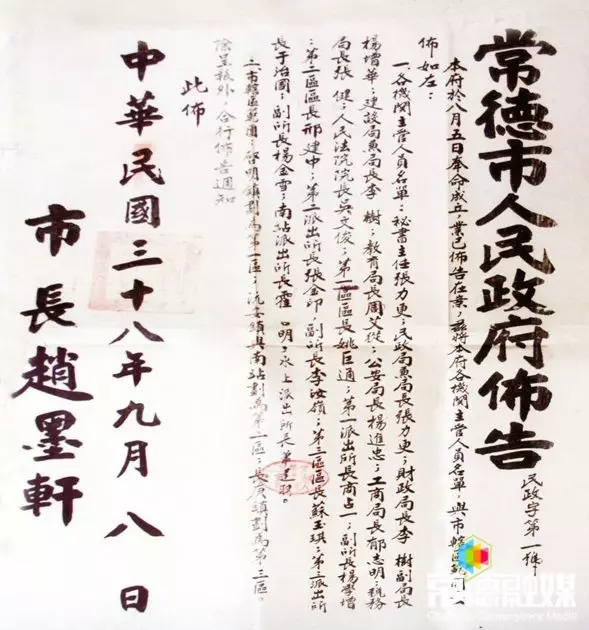 常德市人民政府佈告
民政字第一號
本府於八月五日奉命成立，業已佈告在案，茲將本府各機関主管人員名單，與市轄區範圍公
佈如左：
一、各機関主管人員名單：秘書主任張力更；民政局兼局長張力更；財政局長李 樹副局長
楊增華；建設局兼局長李 樹；教育局長周艾從；公安局長楊進忠；工商局長郁志明；税務
局長張 健；人民法院院長吳文俊；第一區區長姚巨通；第一派出所長商占一；副所長楊學增
；第二區區長邢建中；第二派出所長張金印；副所長李汝嶺；第三區區長蘇玉琪；第三派出所
長于治國；副所長楊金雪；南站派出所長霍 明；水上派出所長 建羽。
二、市轄區範圍：啓明鎮劃為第一區；沅安鎮與南站劃為第二區；長庚鎮劃為第三區。
除呈核外，合行佈告週知
此佈
中華民國三十八年九月八日
市長趙墨軒
常德融媒